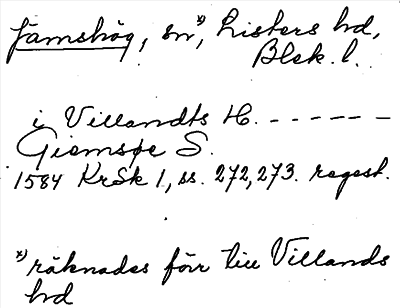 Jämshög, sn *), Listers hd,
Blek. l.
i Villandts H. - - - - - -
Giemsøe S.
1584 KrSk 1, ss. 272, 273. regest.
*) räknades förr till Villands
hd